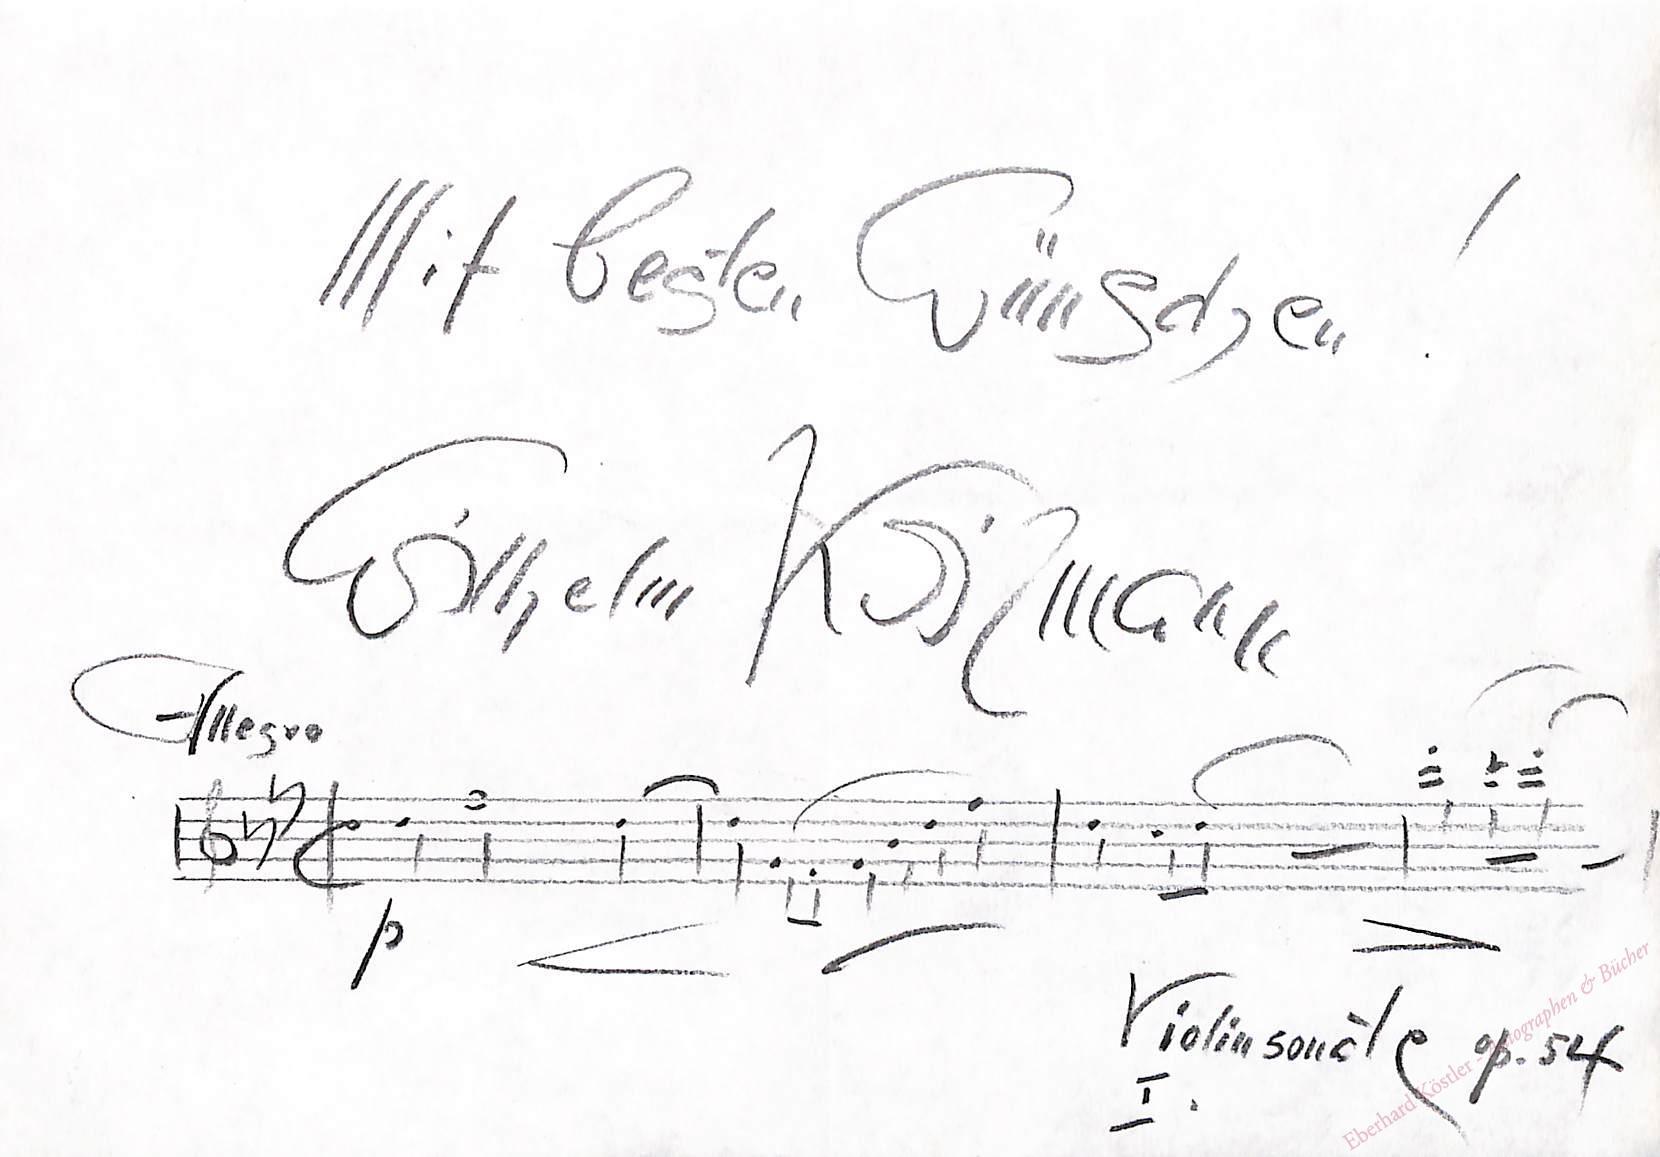 Mit besten Wünschen!
Wilhelm Killmann
Allegro
p
Violinsonate op. 54
I.
Eberhard Köstler - Autographen & Bücher